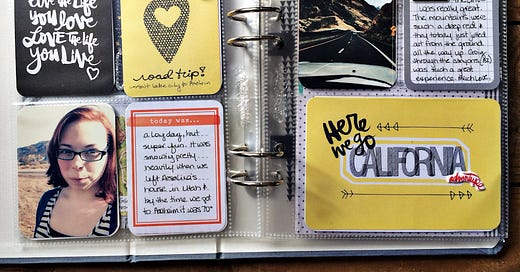 Live the life
you love
LOVE the life
you Live
road trip!
salt lake city to Anaheim
today was...
a long day, but
super fun. It was
snowing pretty
heavily when we
house in Utah &
by the time we got
to Anaheim it was 70°
was really great.
The mountains were
such a deep red &
they today just jutted
out from the ground
all the way up. Going
through the canyons (AZ)
was such a great
experience.
Here
we go
CALIFORNIA
adventure